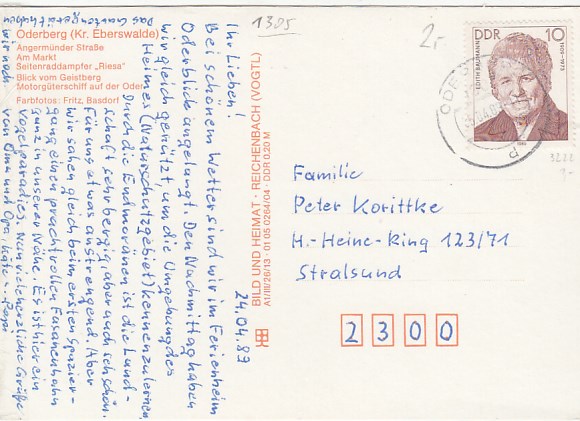 Oderberg (Kr. Eberswalde)
Angermünder Straße
Am Markt
Seitenraddampfer „Riesa"
Blick vom Geistberg
Motorgüterschiff auf der Oder
Farbfotos: Fritz, Basdorf
1305
2,-
24.04.89
Ihr Lieben!
Bei schönem Wetter sind wir im Ferienheim
Oderblick angelangt. Den Nachmittag haben
wir gleich genützt, um die Umgebung des
Heimes (Naturschutzgebiet) kennenzulernen.
Durch die Endmoränen ist die Land-
schaft sehr bergig, aber auch sehr schön.
Für uns etwas anstrengend. Aber
wir sahen gleich beim ersten Spazier-
gang einen prachtvollen Fasanenhahn
ganz in unserer Nähe. Es ist hier ein
Vogelparadies. Nun viele herzliche Grüße
von Oma und Opa, Käte u. Papi
Das Gartengerät haben
wir noch
BILD UND HEIMAT · REICHENBACH (VOGTL)
A1/III/26/13 · 01 05 0264/04 · DDR 0,20 M
DDR 10
EDITH BAUMANN
1909-1973
1989
3222
Familie
Peter Korittke
H.-Heine-Ring 123/71
Stralsund
2300